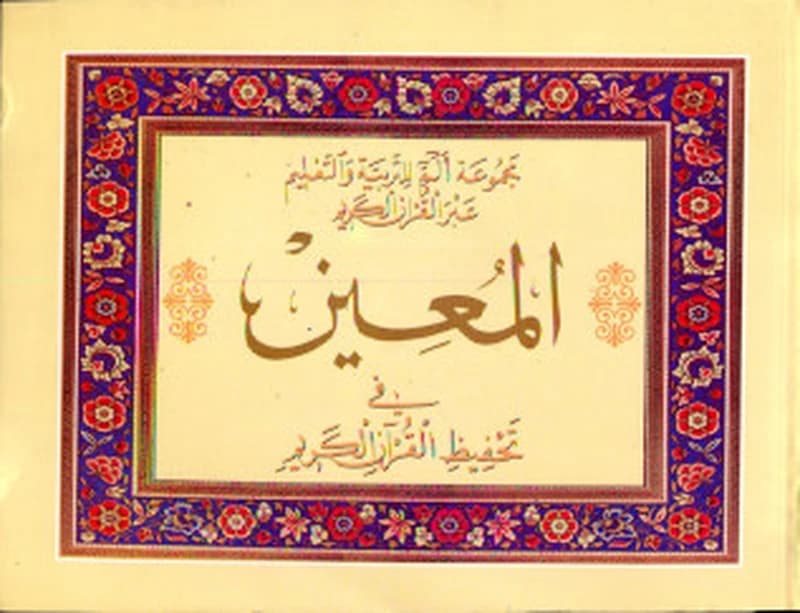 مجموعة ألم للتربية والتعليم
عبر القرآن الكريم
المعين
في
تحفيظ القرآن الكريم